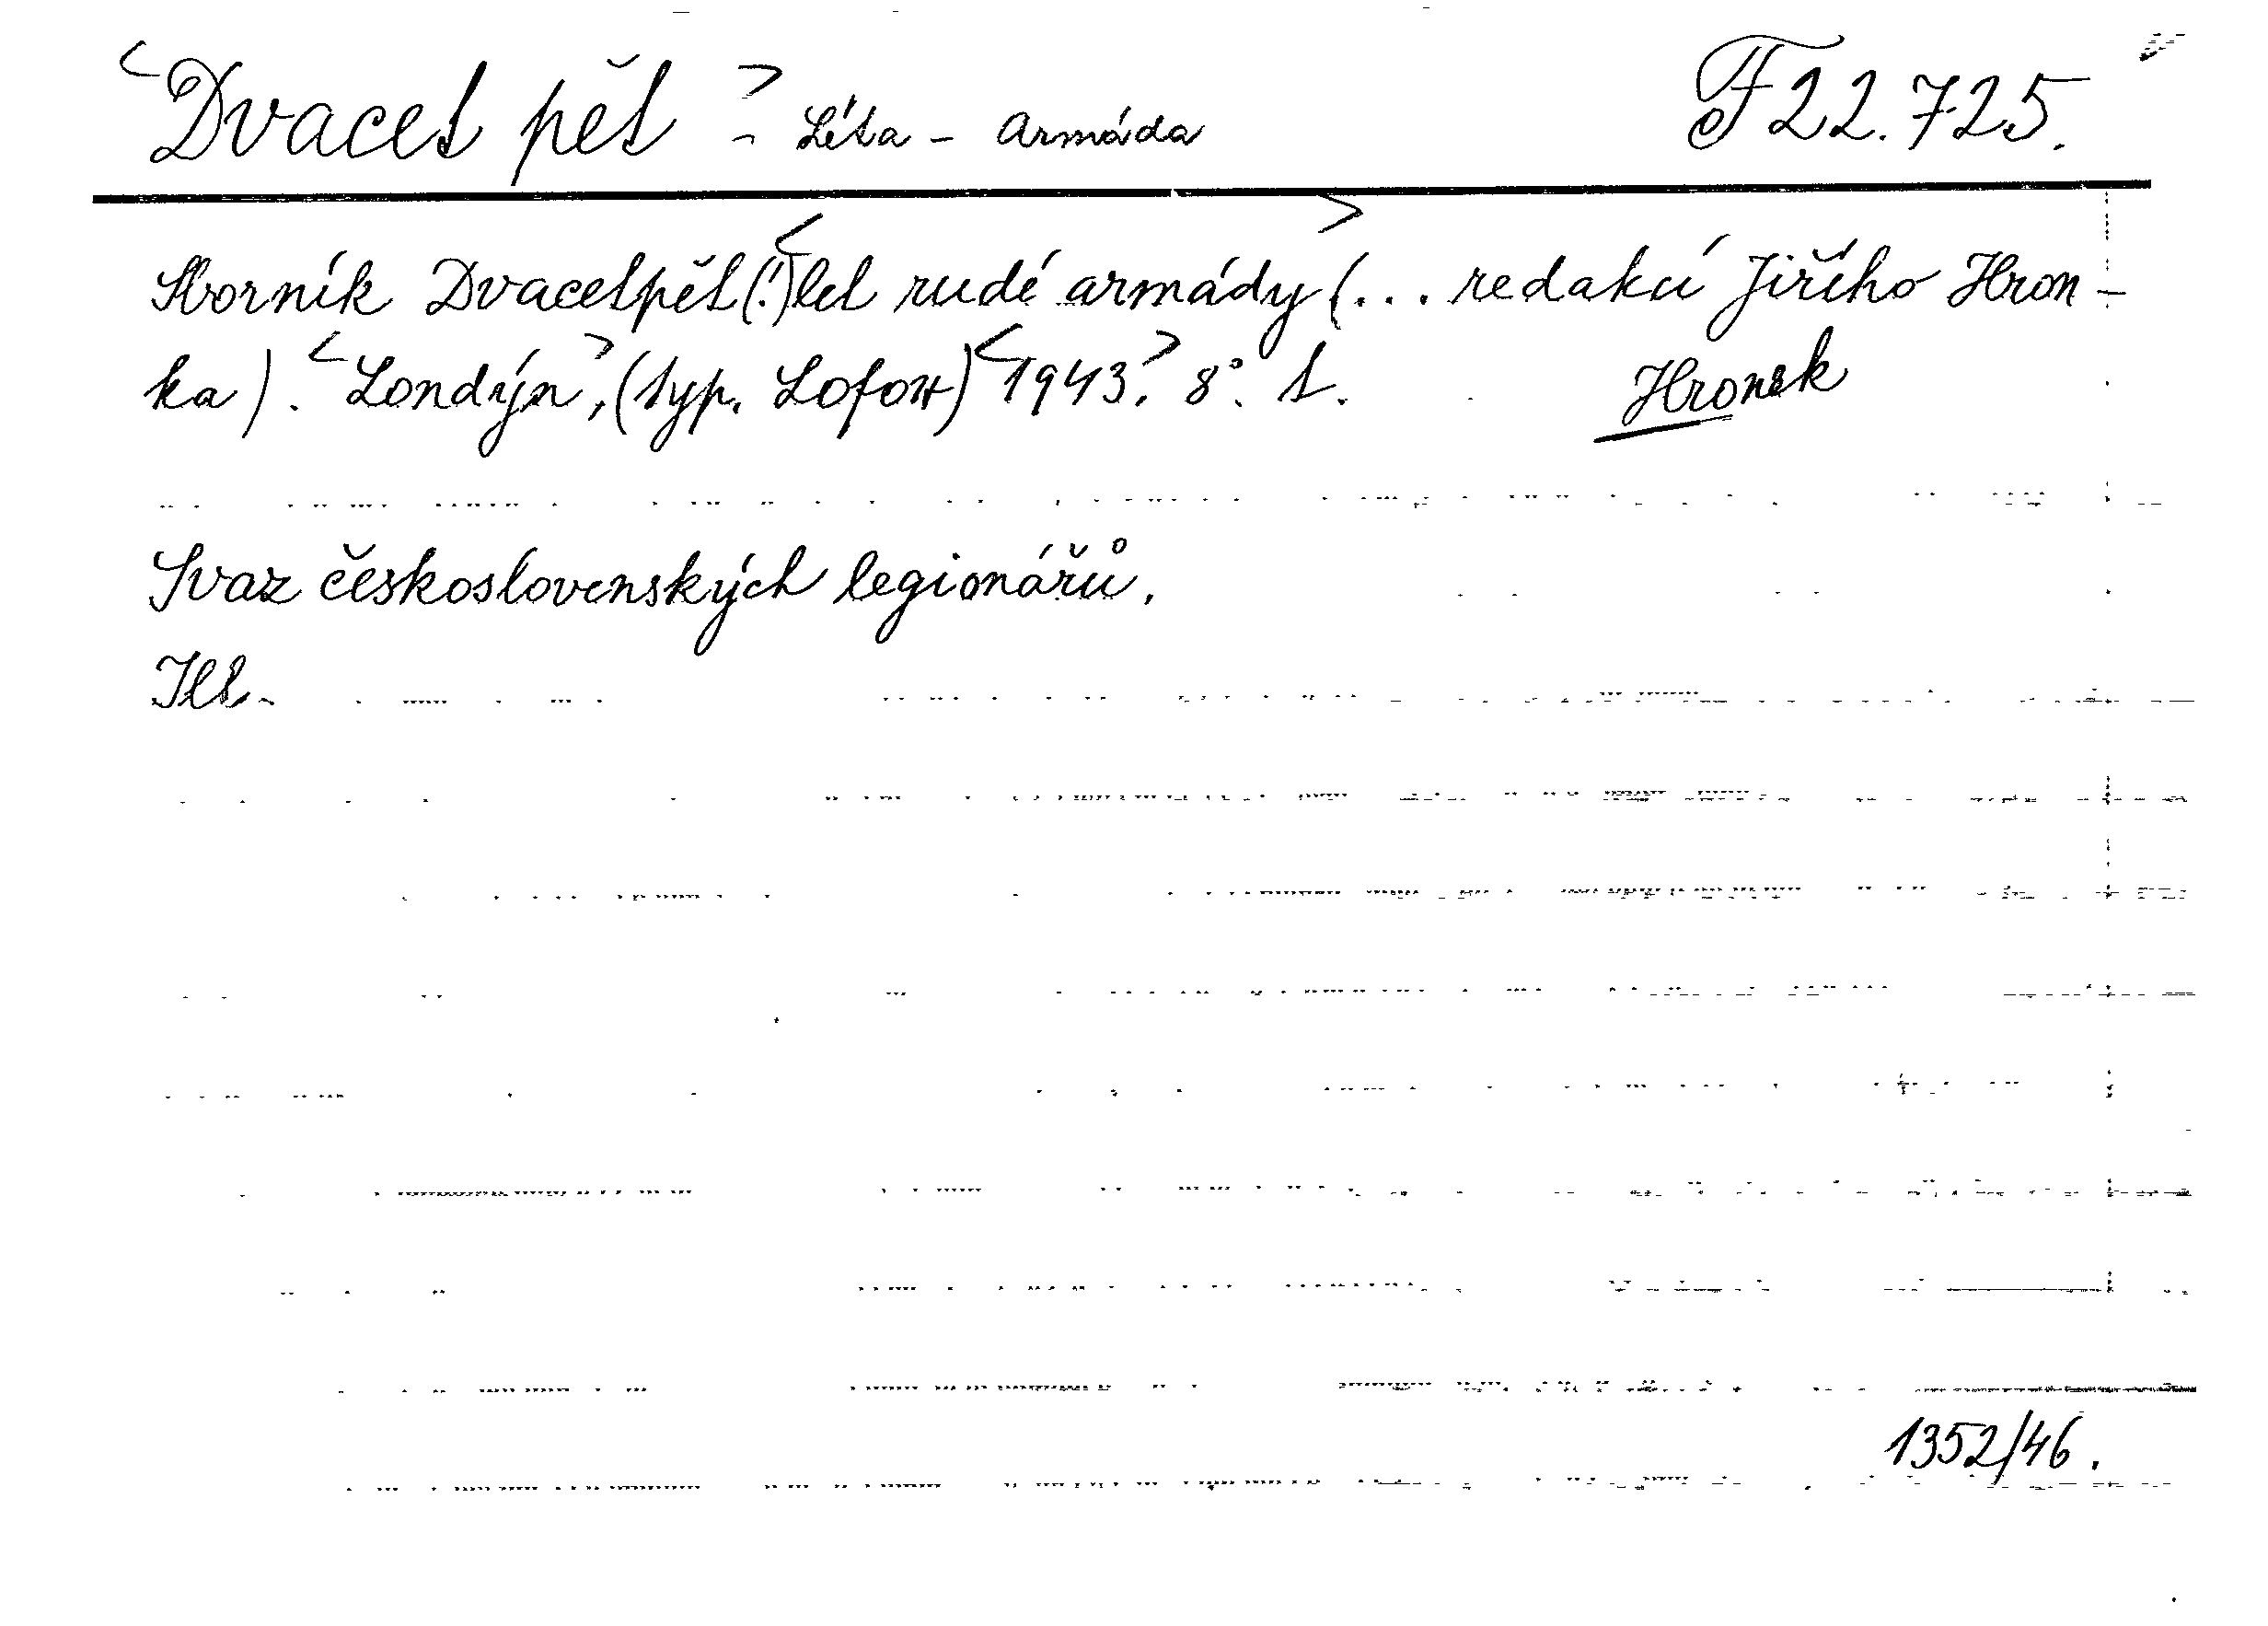 <Dvacet pět> - Léta - Armáda F 22.725.
Sborník Dvacetpět(!)<let rudé armády> (... redakcí Jiřího Hron-
ka). <Londýn>, (typ. Lofox) <1943.> 8°. t.
Hronek
Svaz československých legionářů.
Ill.
1352/46.